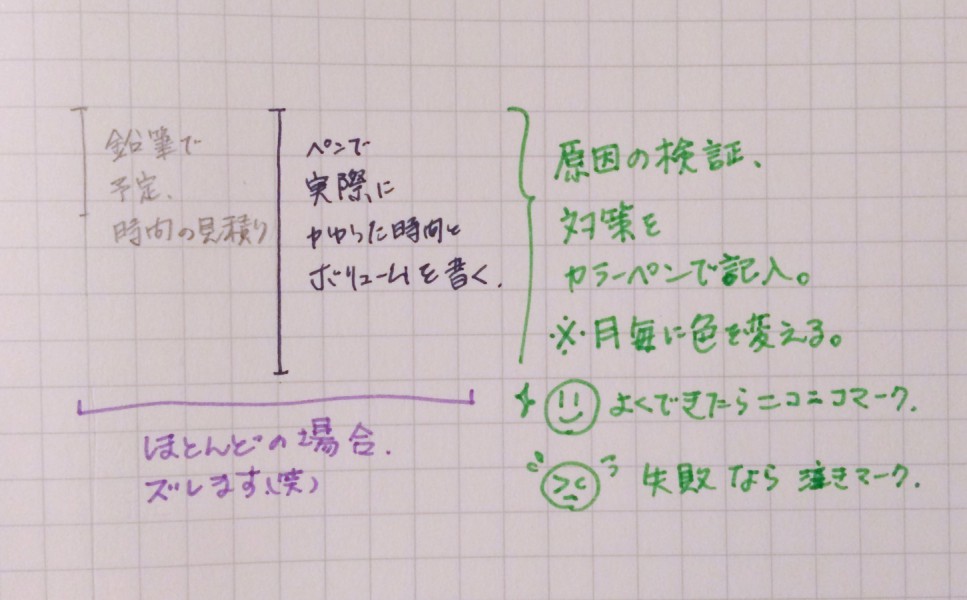 鉛筆で
予定、
時間の見積り
ペンで
実際に
かかった時間と
ボリュームを書く、
原因の検証、
対策を
カラーペンで記入。
※月毎に色を変える。
よくできたらニコニコマーク、
失敗なら泣きマーク、
ほとんどの場合、
ズレます、(笑)